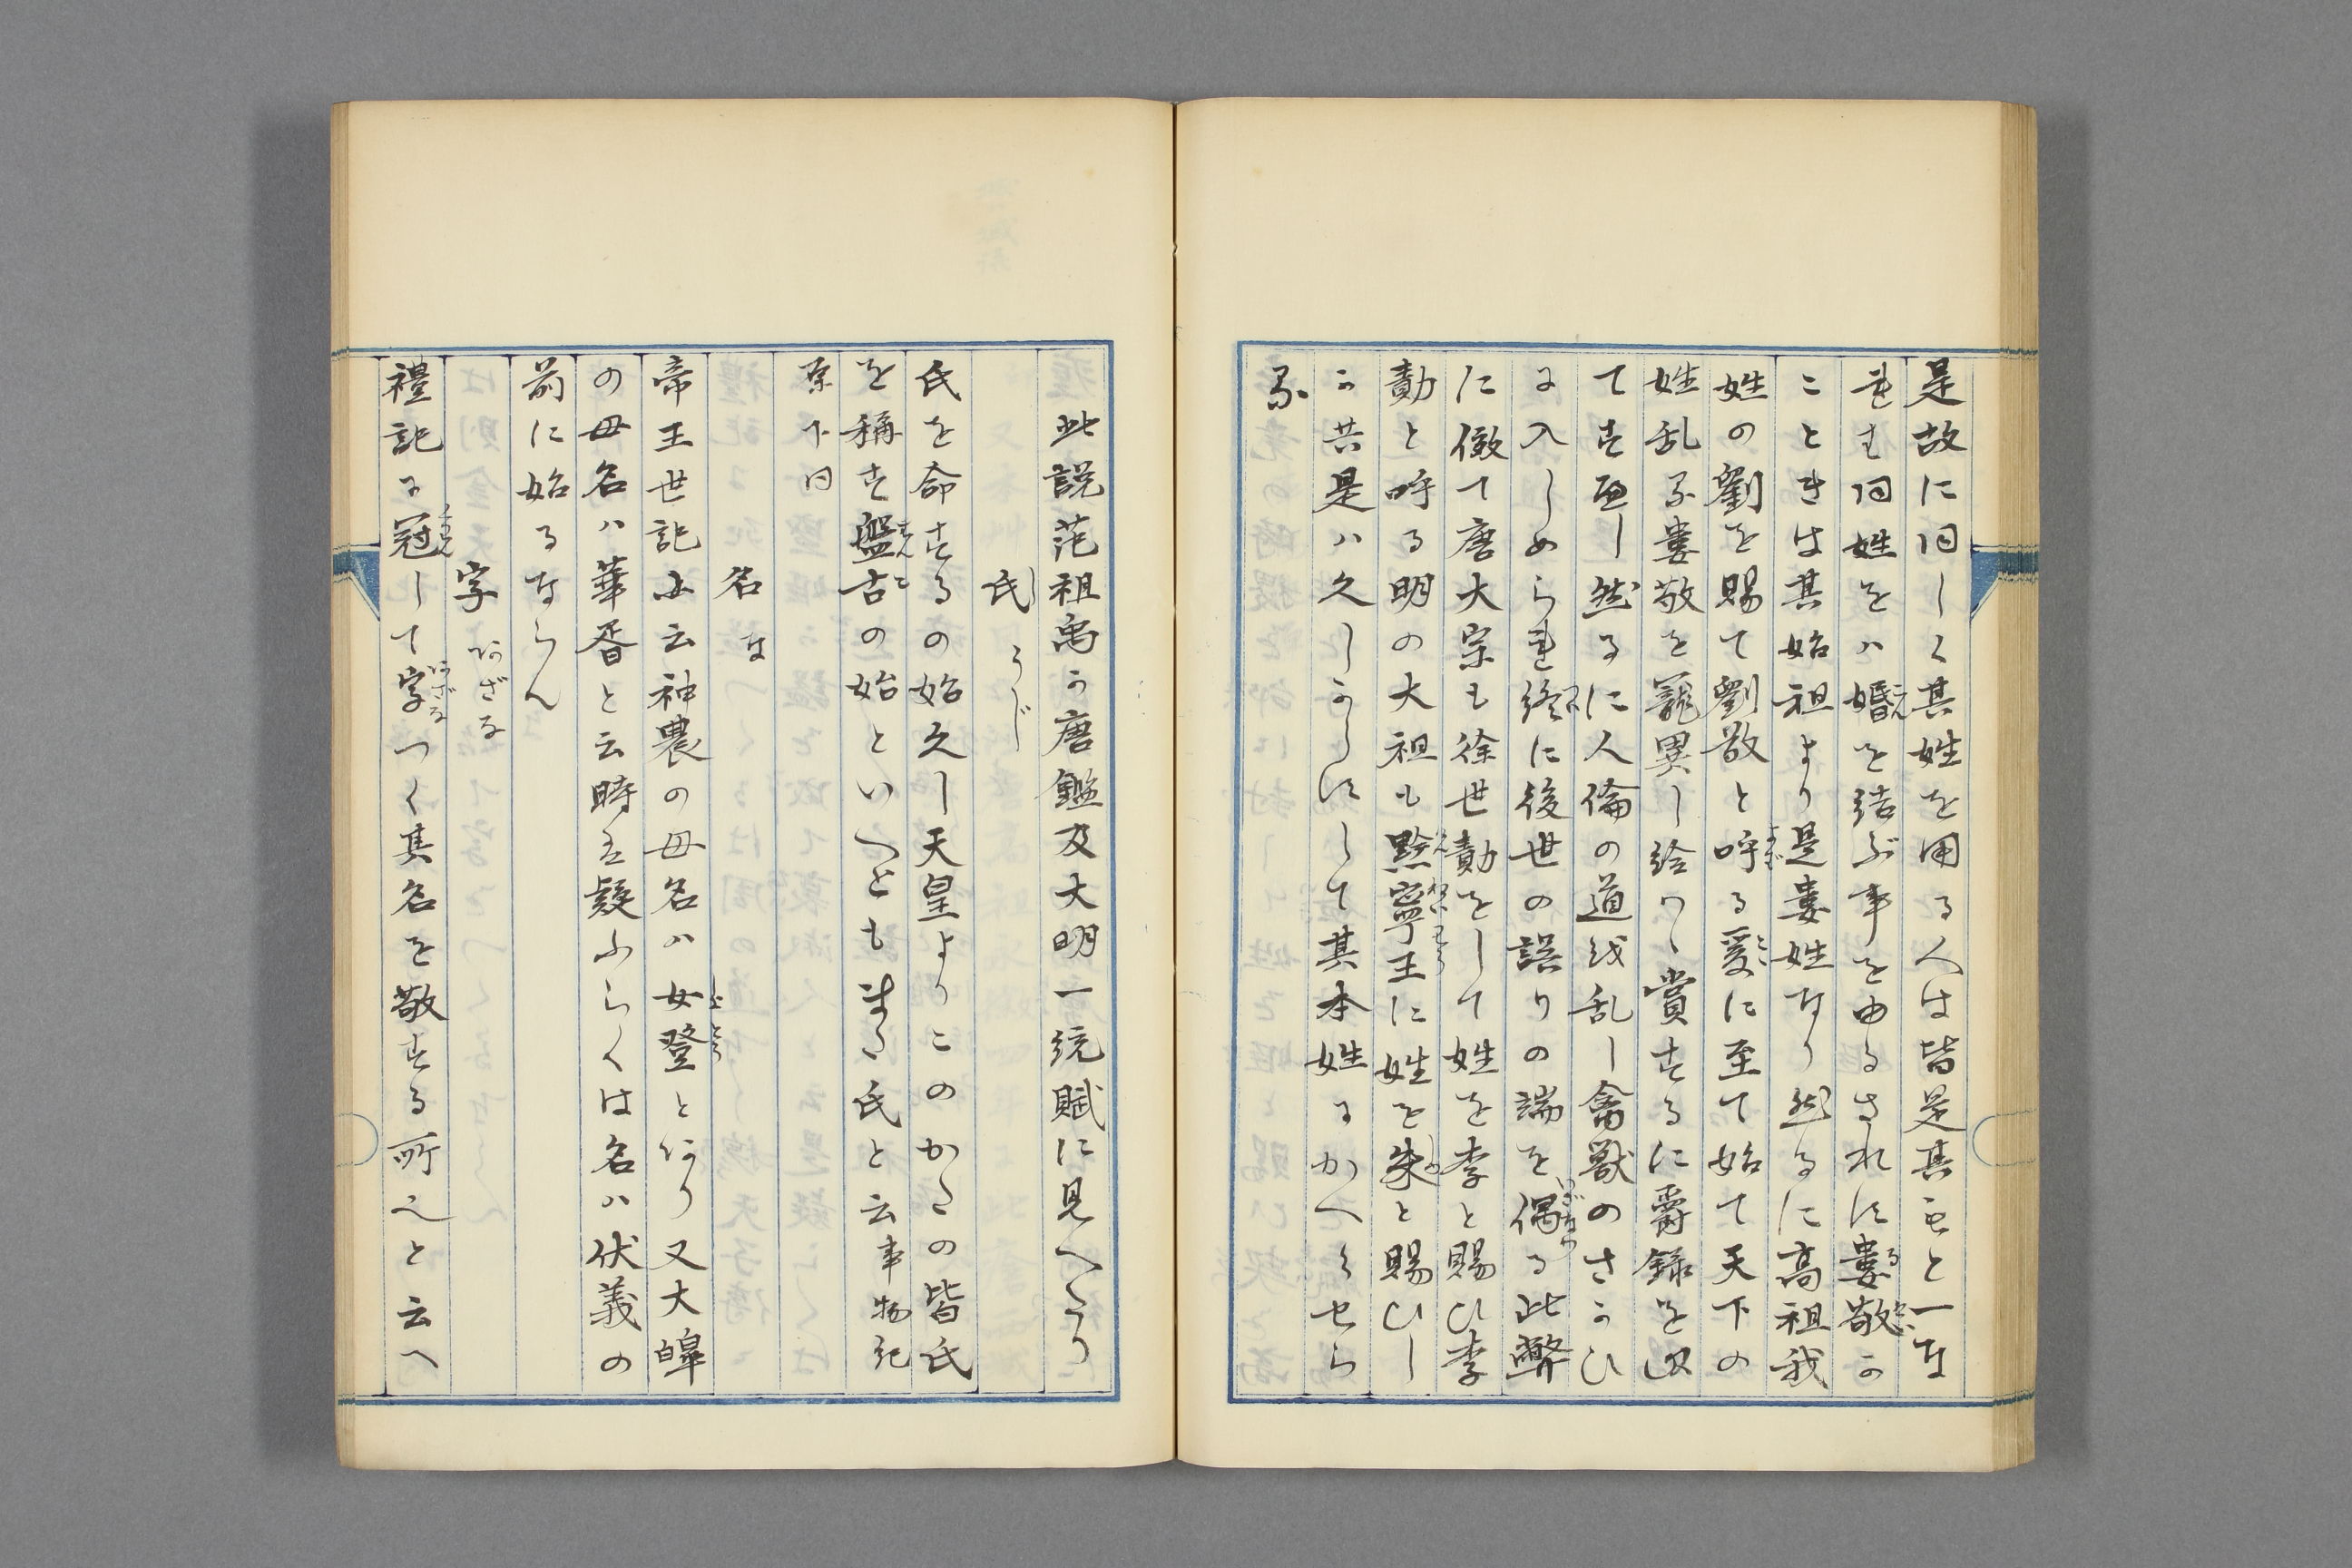 是故に同しく其姓を用る人は皆是其もと一な
れも同姓をハ婚を結ぶ事をゆるされに婁敬か
ことき は其始祖より是婁姓なり然るに高祖我
姓の劉を賜て劉敬と呼る爰に至て始て天下の
姓乱る婁敬を寵異し給ハゝ賞するに爵録を以
てす へし然るに人倫の道を乱し禽獣のさかひ
に入しめられ終に後世の誤りの端を偶る此弊
に倣て唐大宗も徐世勣をして姓を李と賜ひ李
勣と呼る明の大祖も黔寧王に姓を朱と賜ひし
か共是ハ久しからにして其本姓にかへらせら
る
此説范祖禹か唐鑑及大明一統賦に見へたり
氏 うじ
氏を命するの始久し天皇よりこのかたの皆氏
を稱す盤古の始といへとも また氏と云事物紀
原ニ曰
名 な
帝王世記に云神農の母名ハ女登と何り又大皡
の母名ハ華胥と云時ハ疑ふらくは名ハ伏義の
前に始るならん
字 あざな
禮記に冠して字つく其名を敬する所之と云へ